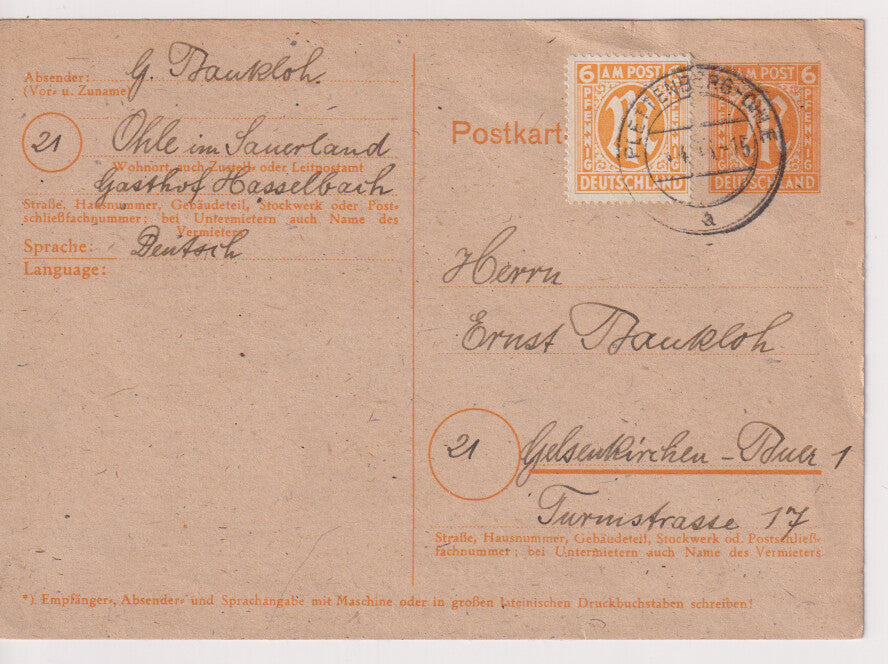 Absender: G. Baukloh
(Vor- u. Zuname)
21
Ohle im Sauerland
Wohnort, auch Zustell- oder Leitpostamt
Gasthof Hasselbach
Straße, Hausnummer, Gebäudeteil, Stockwerk oder Post-
schließfachnummer; bei Untermietern auch Name des
Vermieters
Sprache: Deutsch
Language:
Postkart
6 AM POST
PFENNIG PFENNIG
DEUTSCHLAND
AM POST 6
PFENNIG
DEUTSCHLAND
PLETTENBERG-OHLE
a
Herrn
Ernst Baukloh
21
Gelsenkirchen-Buer 1
Turmstrasse 17
Straße, Hausnummer, Gebäudeteil, Stockwerk od. Postschließ-
fachnummer; bei Untermietern auch Name des Vermieters
*) Empfänger-, Absender- und Sprachangabe mit Maschine oder in großen lateinischen Druckbuchstaben schreiben!